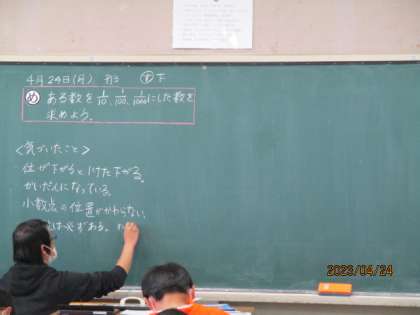 4月24日(月) P13 下
め ある数を1/10、1/100、1/1000にした数を
求めよう。
<気づいたこと>
位が下がるとけた下がる。
かいだんになっている。
小数点の位置がかわらない。
は必ずある。
2023/04/24